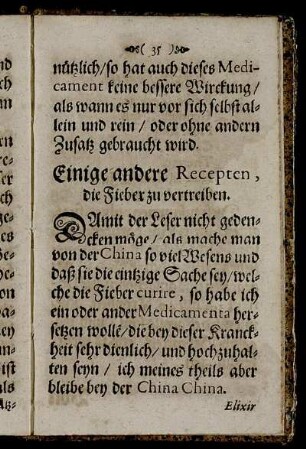 ( 35 )
nützlich/so hat auch dieses Medi-
cament keine bessere Wirckung/
als wann es nur vor sich selbst al-
lein und rein/oder ohne andern
Zusatz gebraucht wird.
Einige andere Recepten,
die Fieber zu vertreiben.
DAmit der Leser nicht geden-
cken möge/als mache man
von der China so viel Wesens und
daß sie die eintzige Sache sey/wel-
che die Fieber curire, so habe ich
ein oder ander Medicamenta her-
setzen wollē/die bey dieser Kranck-
heit sehr dienlich/und hochzuhal-
ten seyn/ich meines theils aber
bleibe bey der China China.
Elixir